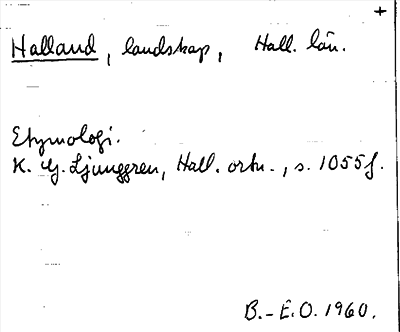 +
Halland, landskap, Hall. län.
Etymologi.
K. G. Ljunggren, Hall. ortn., s. 1055f.
B.-E.O. 1960.